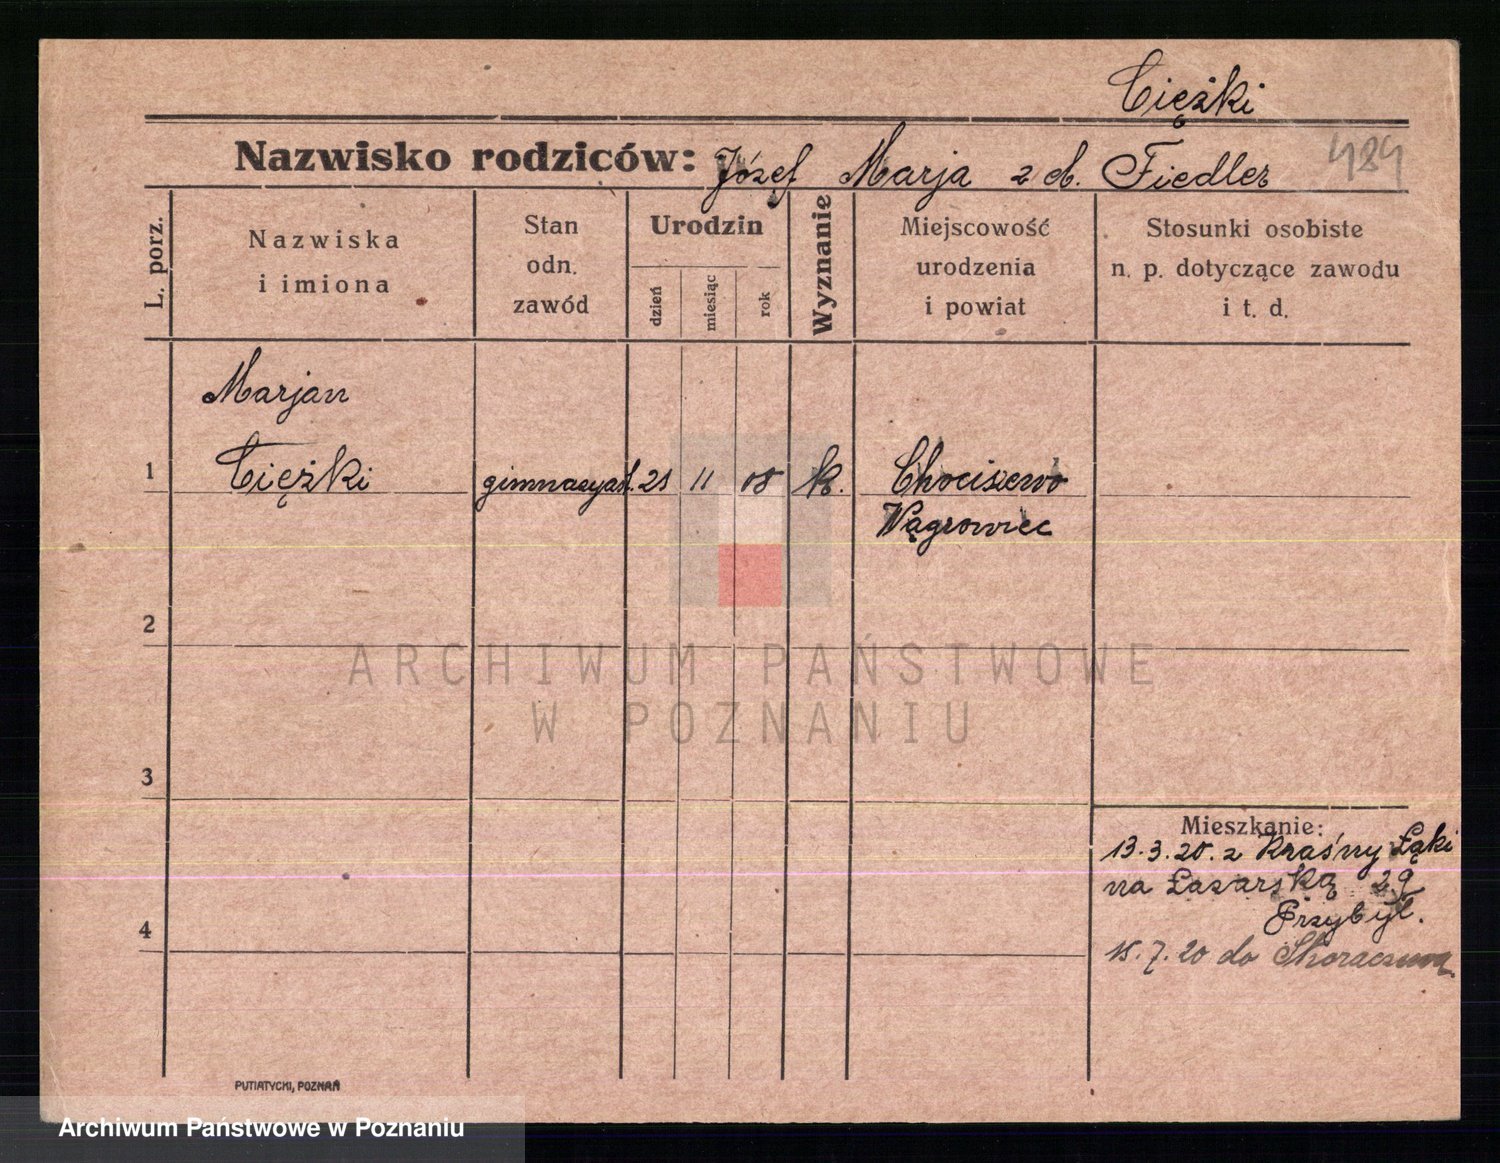 Ciężki
Nazwisko rodziców: Józef Marja z d. Fiedler 484
L. porz.
Nazwiska
i imiona
Stan
odn.
zawód
Urodzin
dzień
miesiąc
rok
Wyznanie
Miejscowość
urodzenia
i powiat
Stosunki osobiste
n. p. dotyczące zawodu
i t. d.
Marjan
1 Ciężki gimnazyast. 21 11 08 k. Chociszewo
Wągrowiec
2
ARCHIWUM PAŃSTWOWE
W POZNANIU
3
Mieszkanie:
13.3.20. z Kraśny Łąki
na Łazarską 29
Przybył.
4
15.7.20 do
PUTIATYCKI, POZNAŃ
Archiwum Państwowe w Poznaniu